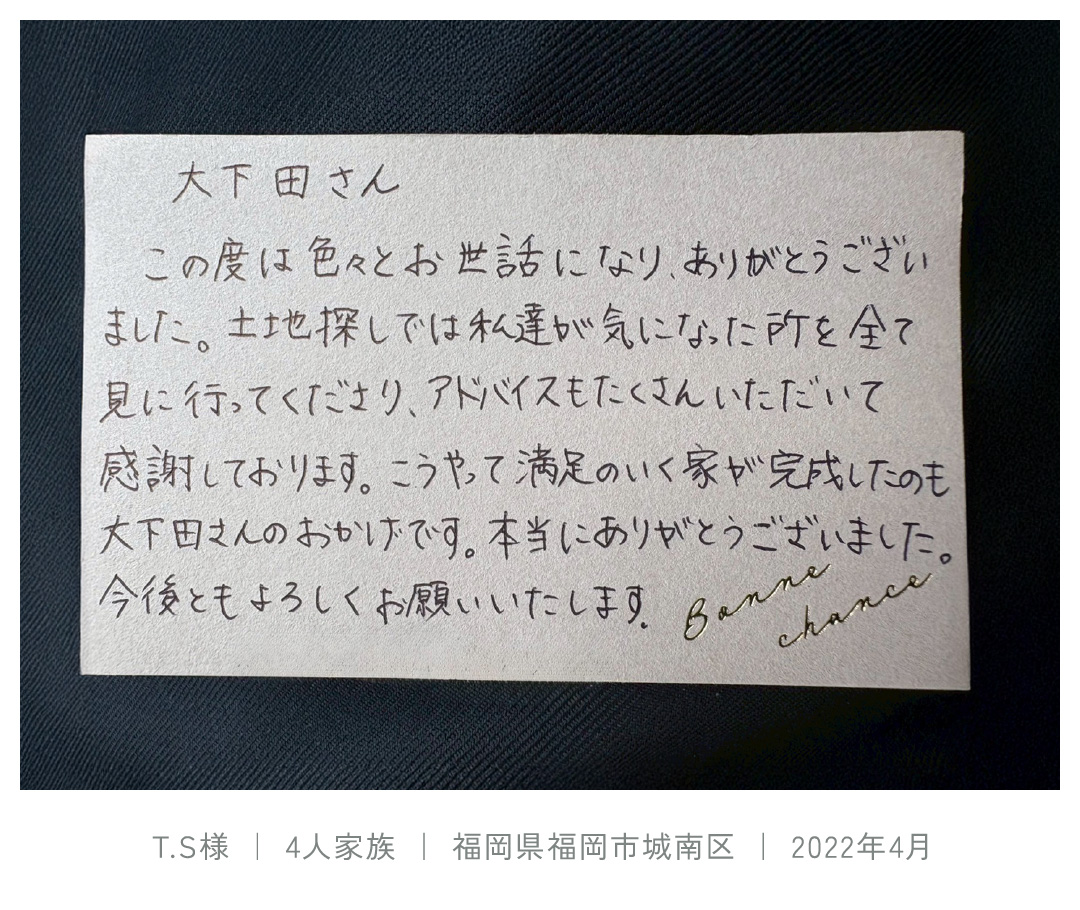 大下田さん
この度は色々とお世話になり、ありがとうござい
ました。土地探しでは私達が気になった所を全て
見に行ってくださり、アドバイスもたくさんいただいて
感謝しております。こうやって満足のいく家が完成したのも
大下田さんのおかげです。本当にありがとうございました。
今後ともよろしくお願いいたします。
Bonne
chance
T.S様 | 4人家族 | 福岡県福岡市城南区 | 2022年4月